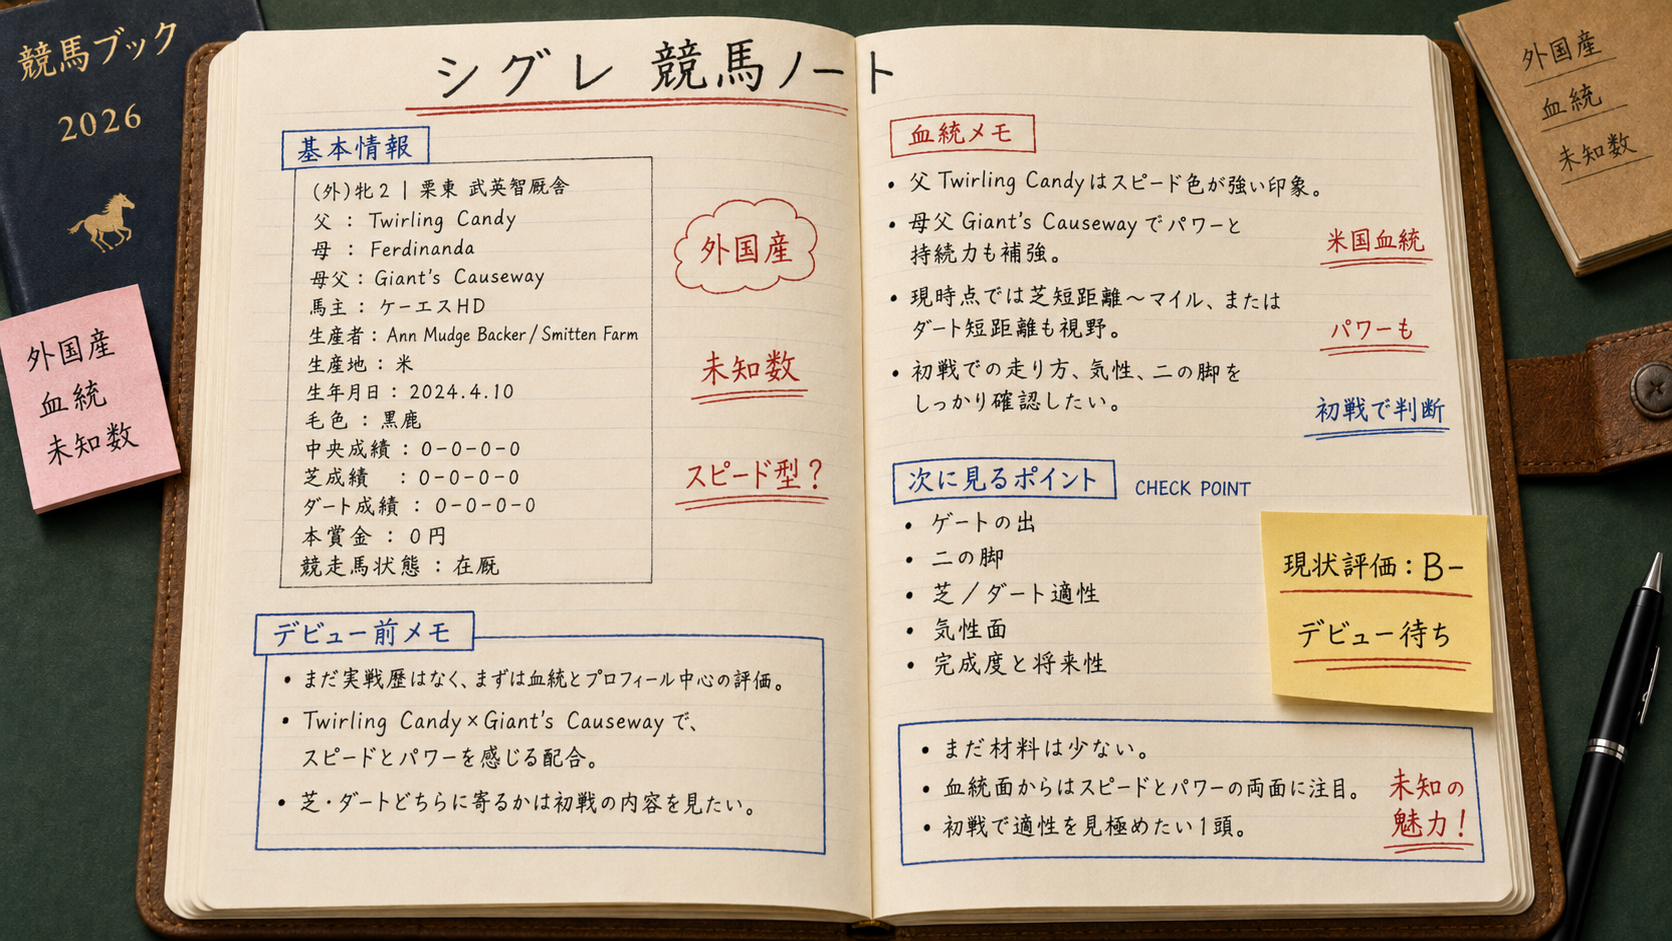 競馬ブック
2026
外国産
血統
未知数
シグレ 競馬ノート
基本情報
(外)牝2 | 栗東 武英智厩舎
父 : Twirling Candy
母 : Ferdinanda
母父 : Giant's Causeway
馬主 : ケーエスHD
生産者 : Ann Mudge Backer / Smitten Farm
生産地 : 米
生年月日 : 2024.4.10
毛色 : 黒鹿
中央成績 : 0-0-0-0
芝成績 : 0-0-0-0
ダート成績 : 0-0-0-0
本賞金 : 0円
競走馬状態 : 在厩
外国産
未知数
スピード型?
デビュー前メモ
• まだ実戦歴はなく、まずは血統とプロフィール中心の評価。
• Twirling Candy×Giant's Causewayで、
スピードとパワーを感じる配合。
• 芝・ダートどちらに寄るかは初戦の内容を見たい。
血統メモ
• 父 Twirling Candyはスピード色が強い印象。
• 母父 Giant's Causewayでパワーと
持続力も補強。
• 現時点では芝短距離〜マイル、または
ダート短距離も視野。
• 初戦での走り方、気性、二の脚を
しっかり確認したい。
米国血統
パワーも
初戦で判断
次に見るポイント CHECK POINT
• ゲートの出
• 二の脚
• 芝/ダート適性
• 気性面
• 完成度と将来性
現状評価:B-
デビュー待ち
• まだ材料は少ない。
• 血統面からはスピードとパワーの両面に注目。
• 初戦で適性を見極めたい1頭。
未知の
魅力!
外国産
血統
未知数